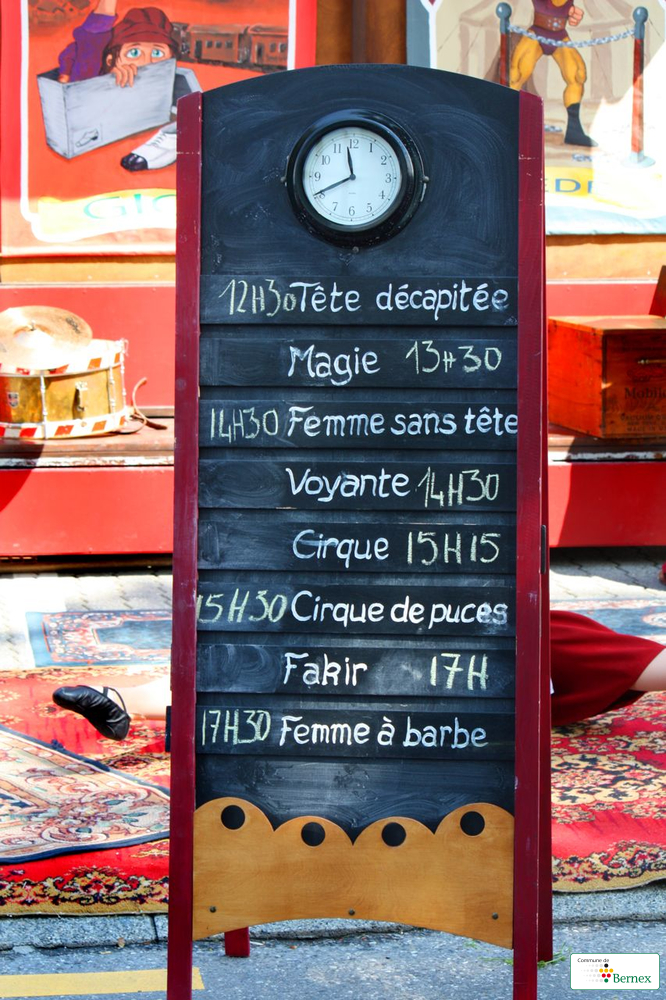 11 12 1 2 3 4 5 6 7 8 9 10
12H30 Tête décapitée
Magie 13H30
14H30 Femme sans tête
Voyante 14H30
Cirque 15H15
15H30 Cirque de puces
Fakir 17H
17H30 Femme à barbe
Commune de
Bernex